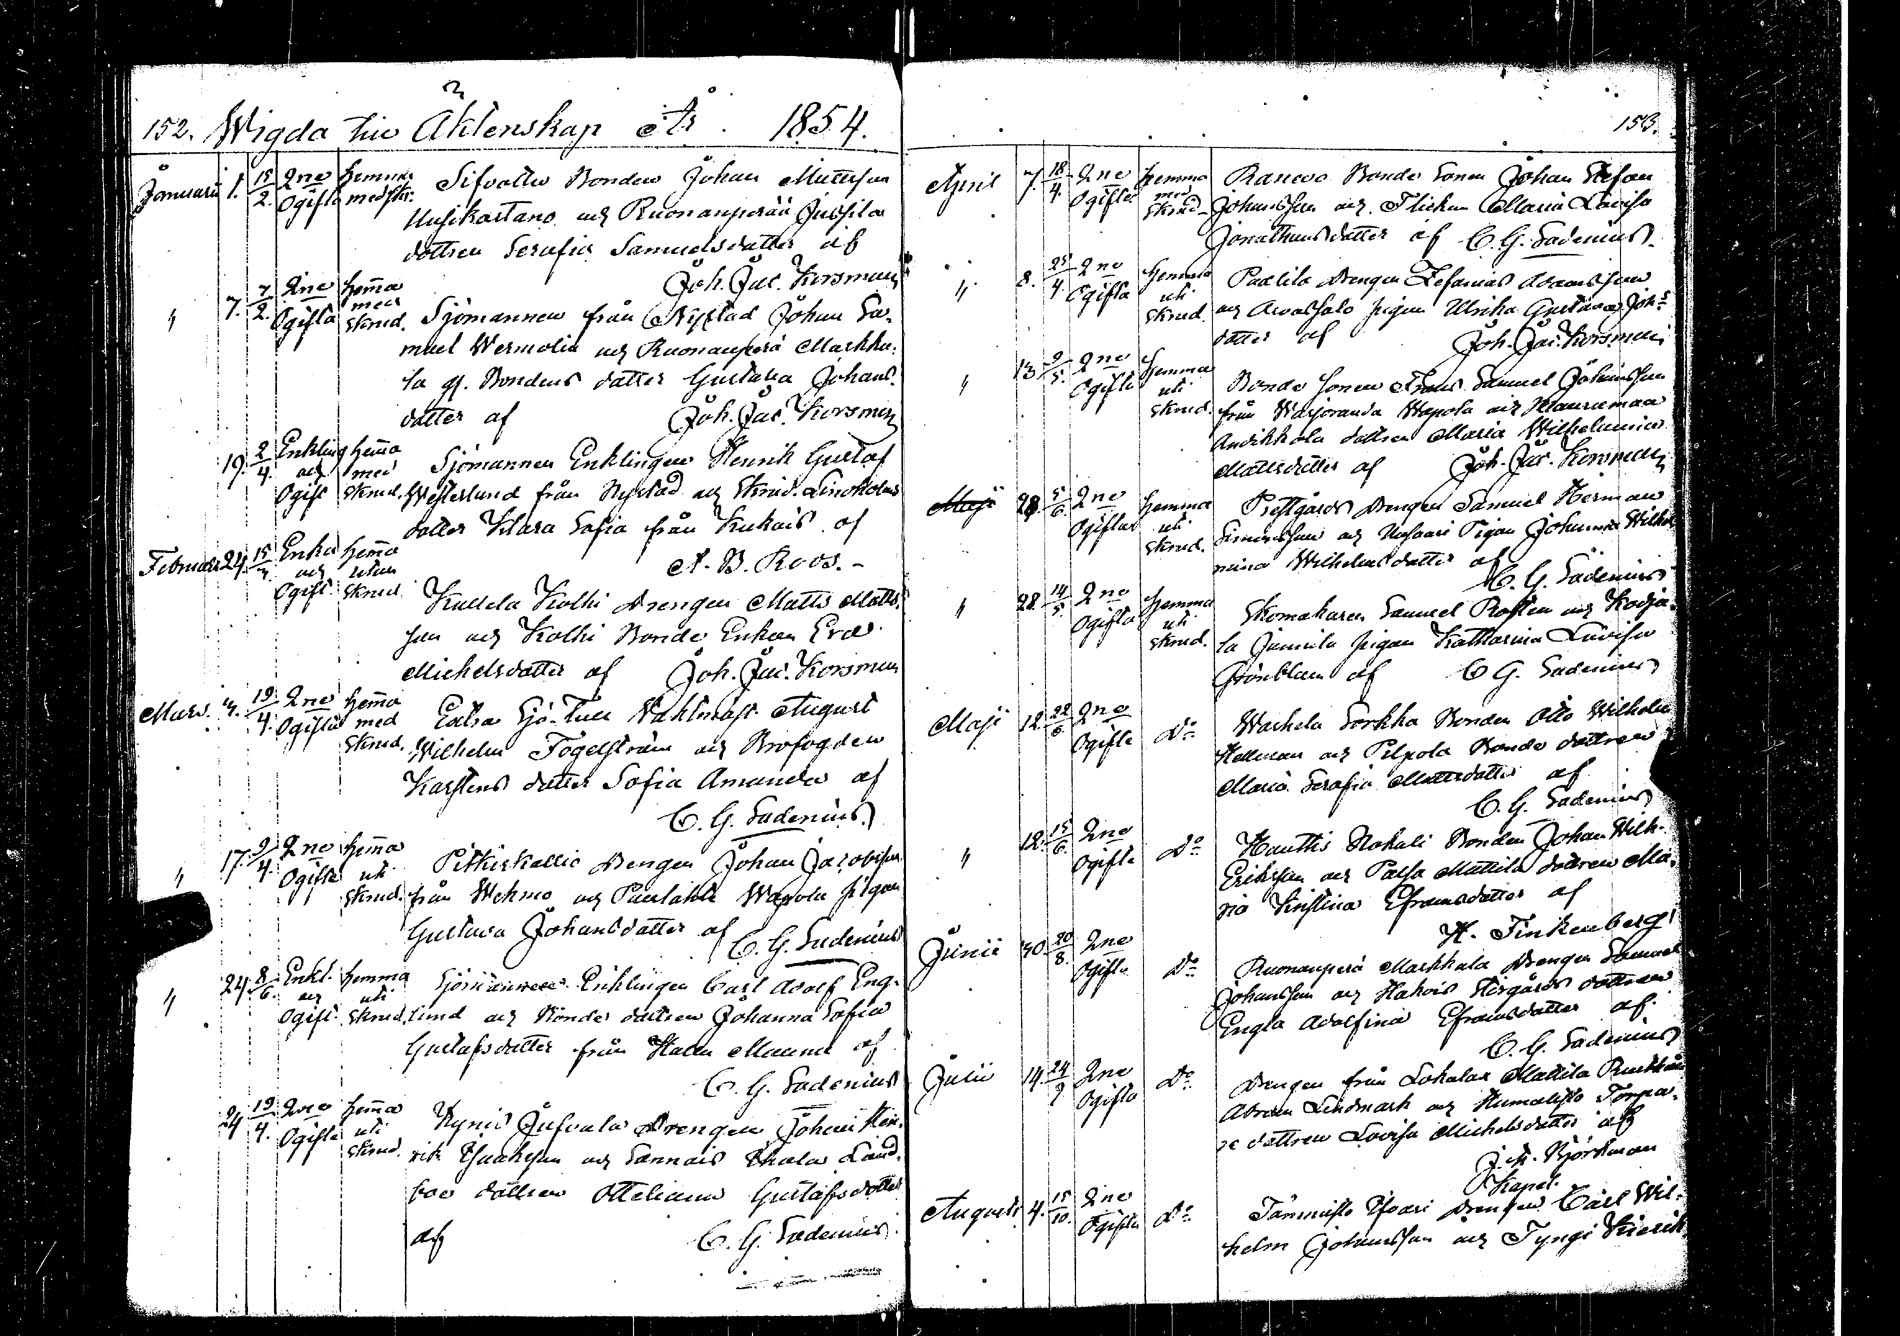 152. Wigda till Äktenskap År 1854.
Januarii 1. 15/2. 2ne Ogifta hemma med skr. Sifvalle Bonden Johan Mattsson
Uusikartano och Ruonanperää Jussila
dottren Serafia Samuelsdotter af
Joh. Jac. Korsman
" 7. 7/2. 2ne Ogifta hem̄a med skrud. Sjömannen från Nystad Johan Sa-
muel Wermolin och Ruonanperä Markku-
la gl. Bondens dotter Gustava Johans-
dotter af Joh. Jac. Korsman
19. 2/4. Enkling och Ogift hem̄a med skrud. Sjömannen Enklingen Henrik Gustaf
Westerlund från Nystad och Skrad. Lindholms
dotter Klara Sofia från Kukais af
A. B. Roos.
Februari 24. 15/4 Enka och Ogift hem̄a utan skrud Kallela Kolhi Drengen Matts Matts-
son och Kolhi Bonde Enkan Eva
Michelsdotter af Joh. Jac. Korsman
Mars. 3. 19/4. 2ne Ogifta hem̄a med skrud. Extra Sjö-Tull Wahtmäst. August
Wilhelm Fogelström och Brofogden
Karstens dotter Sofia Amanda af
C. G. Sadenius.
" 17. 9/4. 2ne Ogifta hem̄a uti skrud. Pitkiskallio Drengen Johan Jacobsson
från Wehmo och Wapola pigan
Gustava Johansdotter af C. G. Sadenius
" 24. 8/6. Enkl. och Ogift hemma uti skrud. Sjömannen Enklingen Carl Adolf Eng-
lund och Bonde dottren Johanna Sofia
Gustafsdotter från Maunu af
C. G. Sadenius
24 19/4. 2ne Ogifta hem̄a uti skrud. Drengen Johan Hen-
rik Isaksson och Sannais Land-
boe dottren Otteliana Gustafsdotter
af C. G. Sadenius
153.
April 7. 18/4. 2ne Ogifta hemma med skrud Bonde Sonen Johan Stefan
Johansson och Flickan Maria Lovisa
Jonathansdotter af C. G. Sadenius.
" 8. 25/4. 2ne Ogifta hemma uti skrud. Paalila Drengen Zefanias Adamsson
och Arvassalo pigan Ulrika Gustava Joh:s
dotter af Joh. Jac. Korsman
" 13 9/5. 2ne Ogifta hemma uti skrud. Bonde Sonen Frans Samuel Johansson
från Warjoranda Wapola och Kaurumaa
Anikkola dottren Maria Wilhelmina
Mattsdotter af Joh. Jac. Korsman
28. 5/6. 2ne Ogifta hemma uti skrud. Prestgårds Drengen Samuel Herman
Simonsson och Pigan Johanna Wilhel-
mina Wilhelmsdotter af
C. G. Sadenius
" 28. 14/5. 2ne Ogifta hemma uti skrud. Skomakaren Samuel Rosten och Kodja-
la Janeila pigan Katharina Lovisa
Grönblom af C. G. Sadenius
Maji 12. 22/6. 2ne Ogifta Do Warhela Sorkka Bonden Otto Wilhelm
Hellman och Pilpola Bonde dottren
Maria Serafia Mattsdotter af
C. G. Sadenius
" 12. 15/6. 2ne Ogifta Do Hauttis Nokali Bonden Johan Wilh.
Eriksson och Palsa Mattila dottren Ma-
ria Kristina Efraimsdotter af
H. Finkenberg
Junii 30. 20/8. 2ne Ogifta Do Ruonanperä Markkula Drengen Samuel
Johansson och Hakois Storgårds dottren
Engla Adolfina Efraimsdotter af
C. G. Sadenius
Julii 14. 24/9 2ne Ogifta Do Drengen från Lokalax Mattila
Abram Lindmark och Humalisto Torpa-
re dottren Lovisa Michelsdotter af
J. A. Björkman
Kapel.
Augusti 4. 15/10. 2ne Ogifta Do Tammisto Isvari Drengen Carl Wil-
helm Johansson och Tyngi Kierik